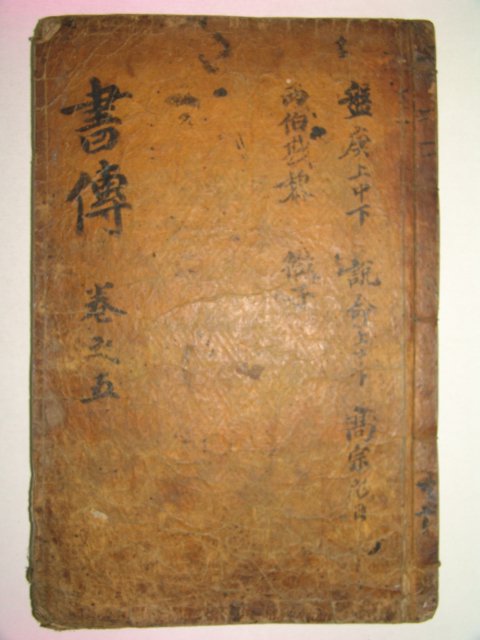 盤庚上中下 說命上中下 高宗肜日
西伯戡黎 微子
書傳 卷之五